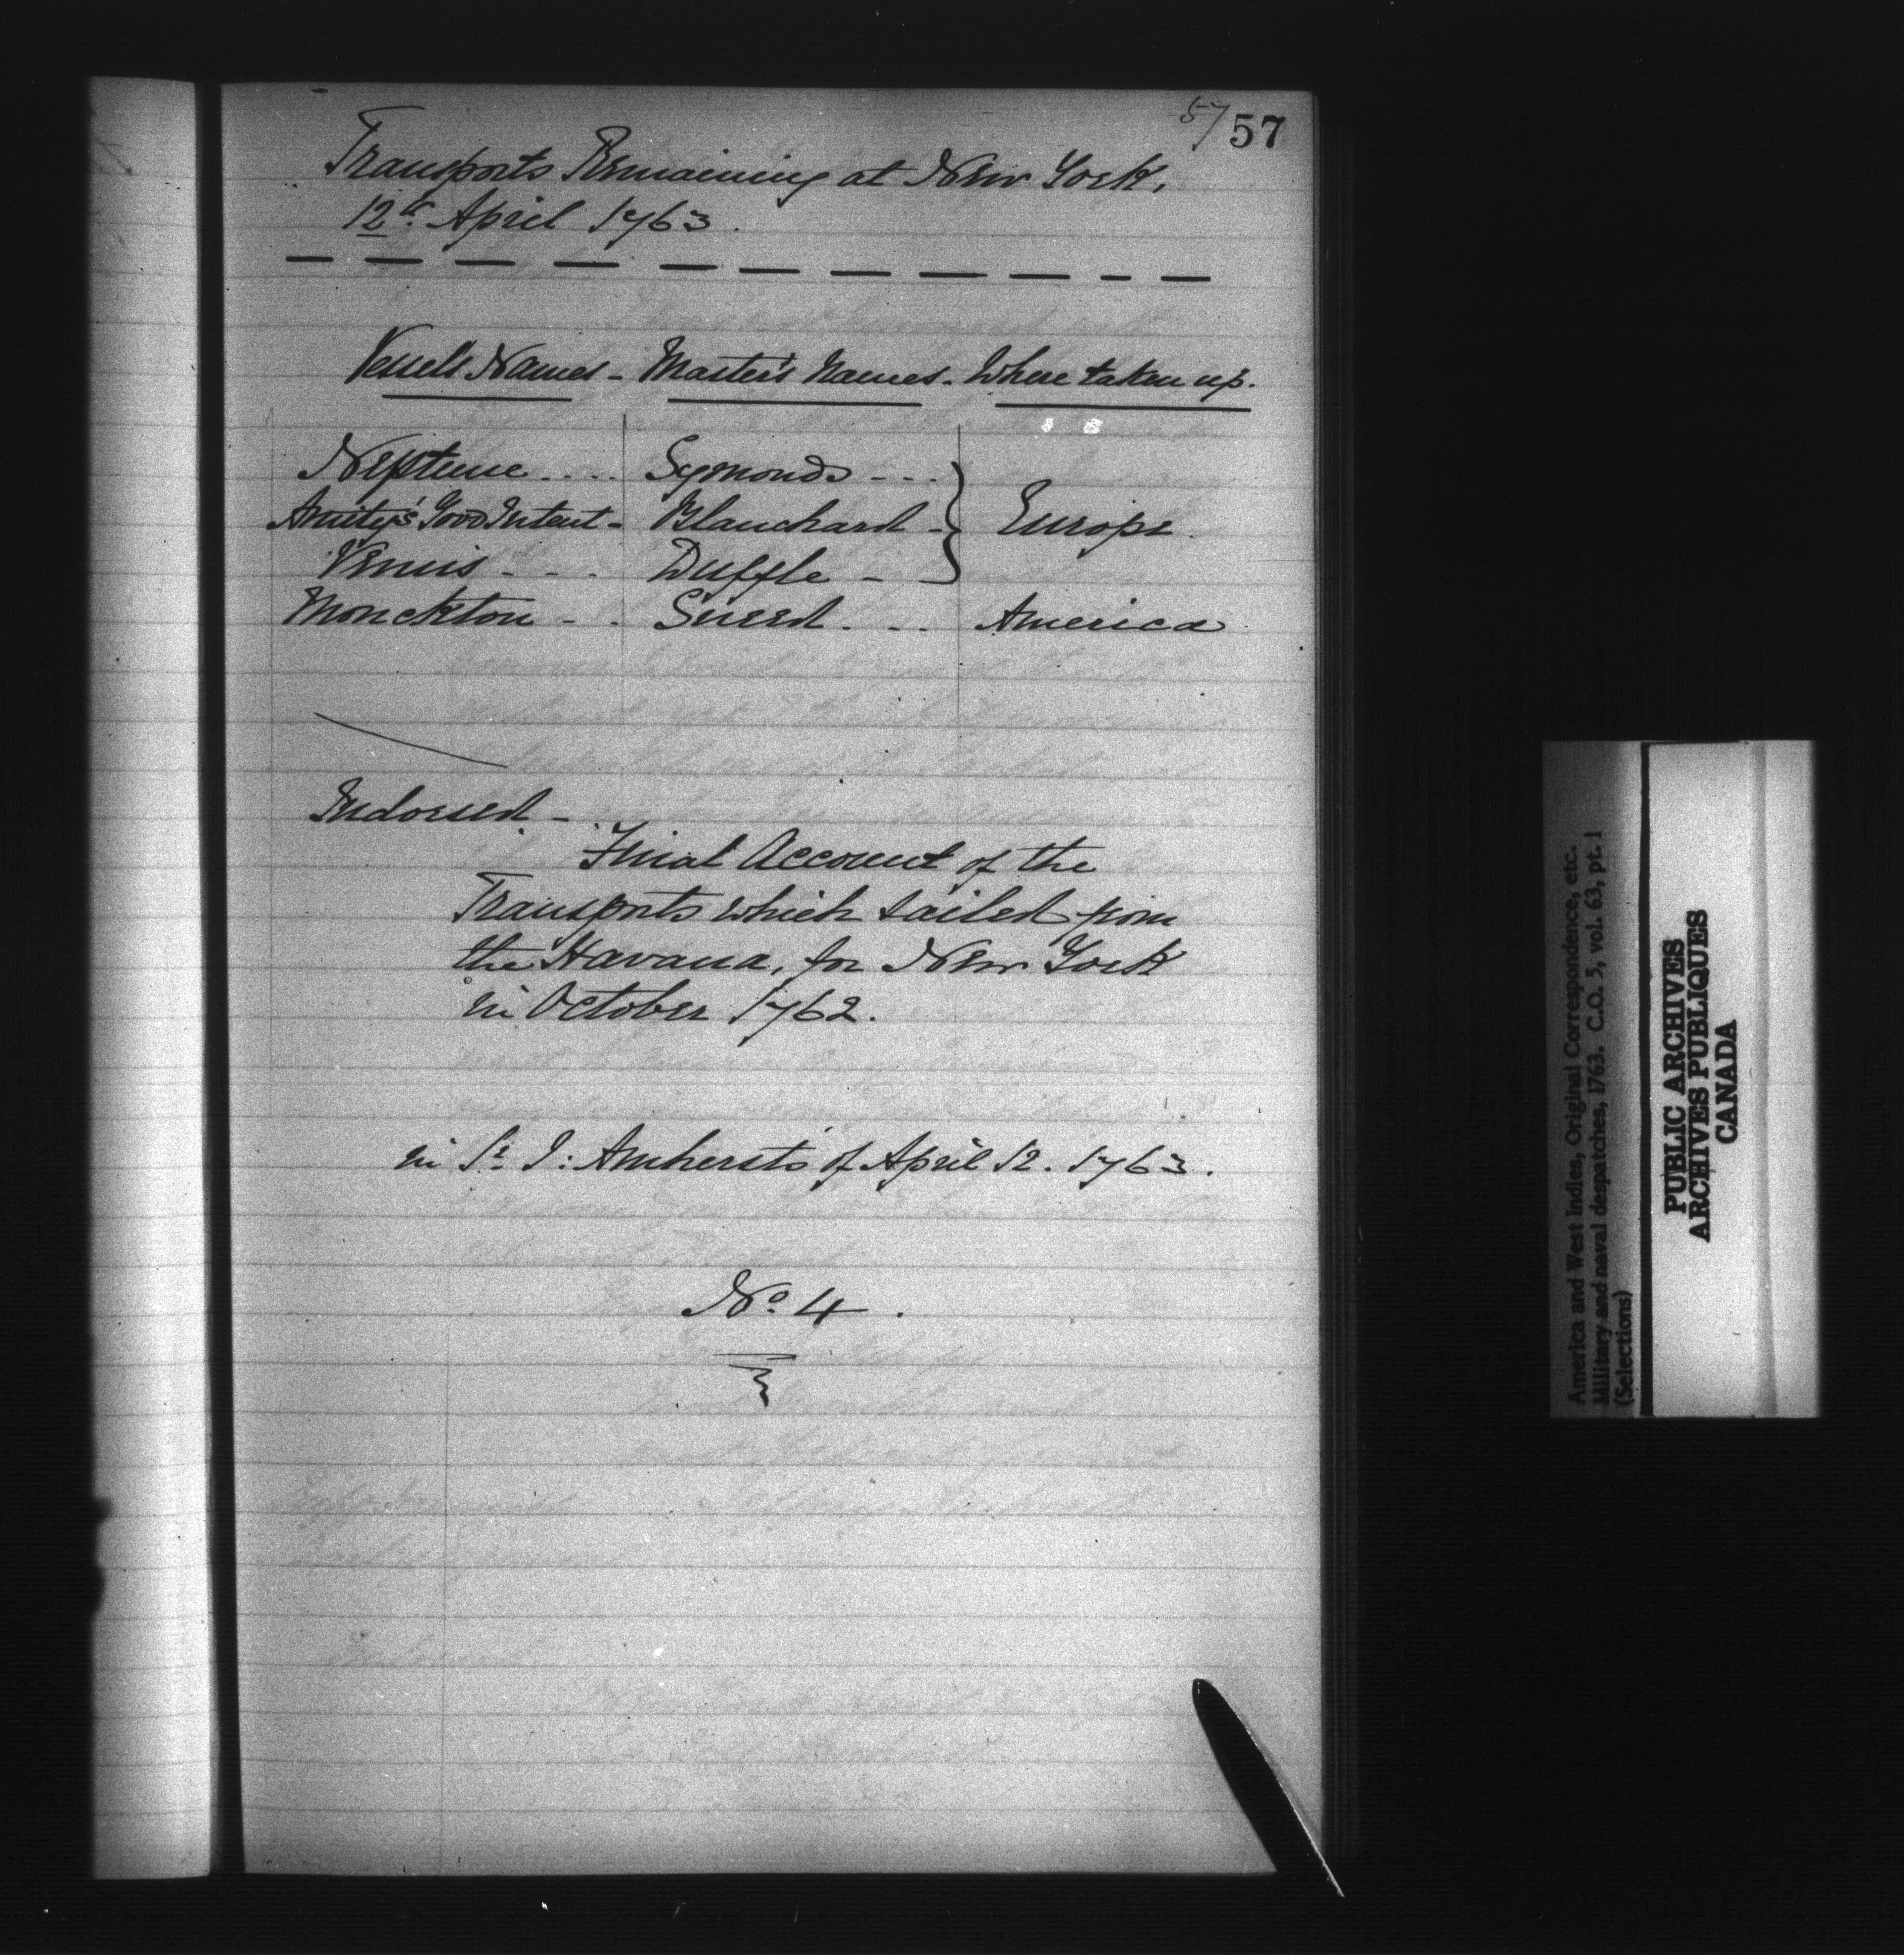 57 57
Transports Remaining at New York,
12th April 1763.
Vessels Names - Master's Names - Where taken up.
Neptune .... Symonds - - -
Amity's Good Intent - Blanchard - Europe.
Venus - - - Duffle -
Monckton - - Sneed . - - America
Indorsed -
Final Account of the
Transports which sailed from
the Havana, for New York
in October 1762.
in Sr J: Amherst's of April 12. 1763.
No 4.
America and West Indies, Original Correspondence, etc.
Military and naval despatches, 1763. C.O. 5, vol. 63, pt. 1
(Selections)
PUBLIC ARCHIVES
ARCHIVES PUBLIQUES
CANADA